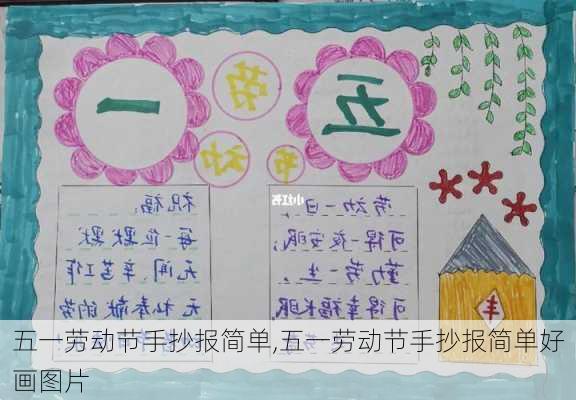 五一
劳
动节
劳动一日,
可得一夜安眠;
勤劳一生,
可得幸福长眠
祝福:
每一位默默
无闻、辛苦工作
无私奉献的劳
丰
小红书
五一劳动节手抄报简单,五一劳动节手抄报简单好
画图片